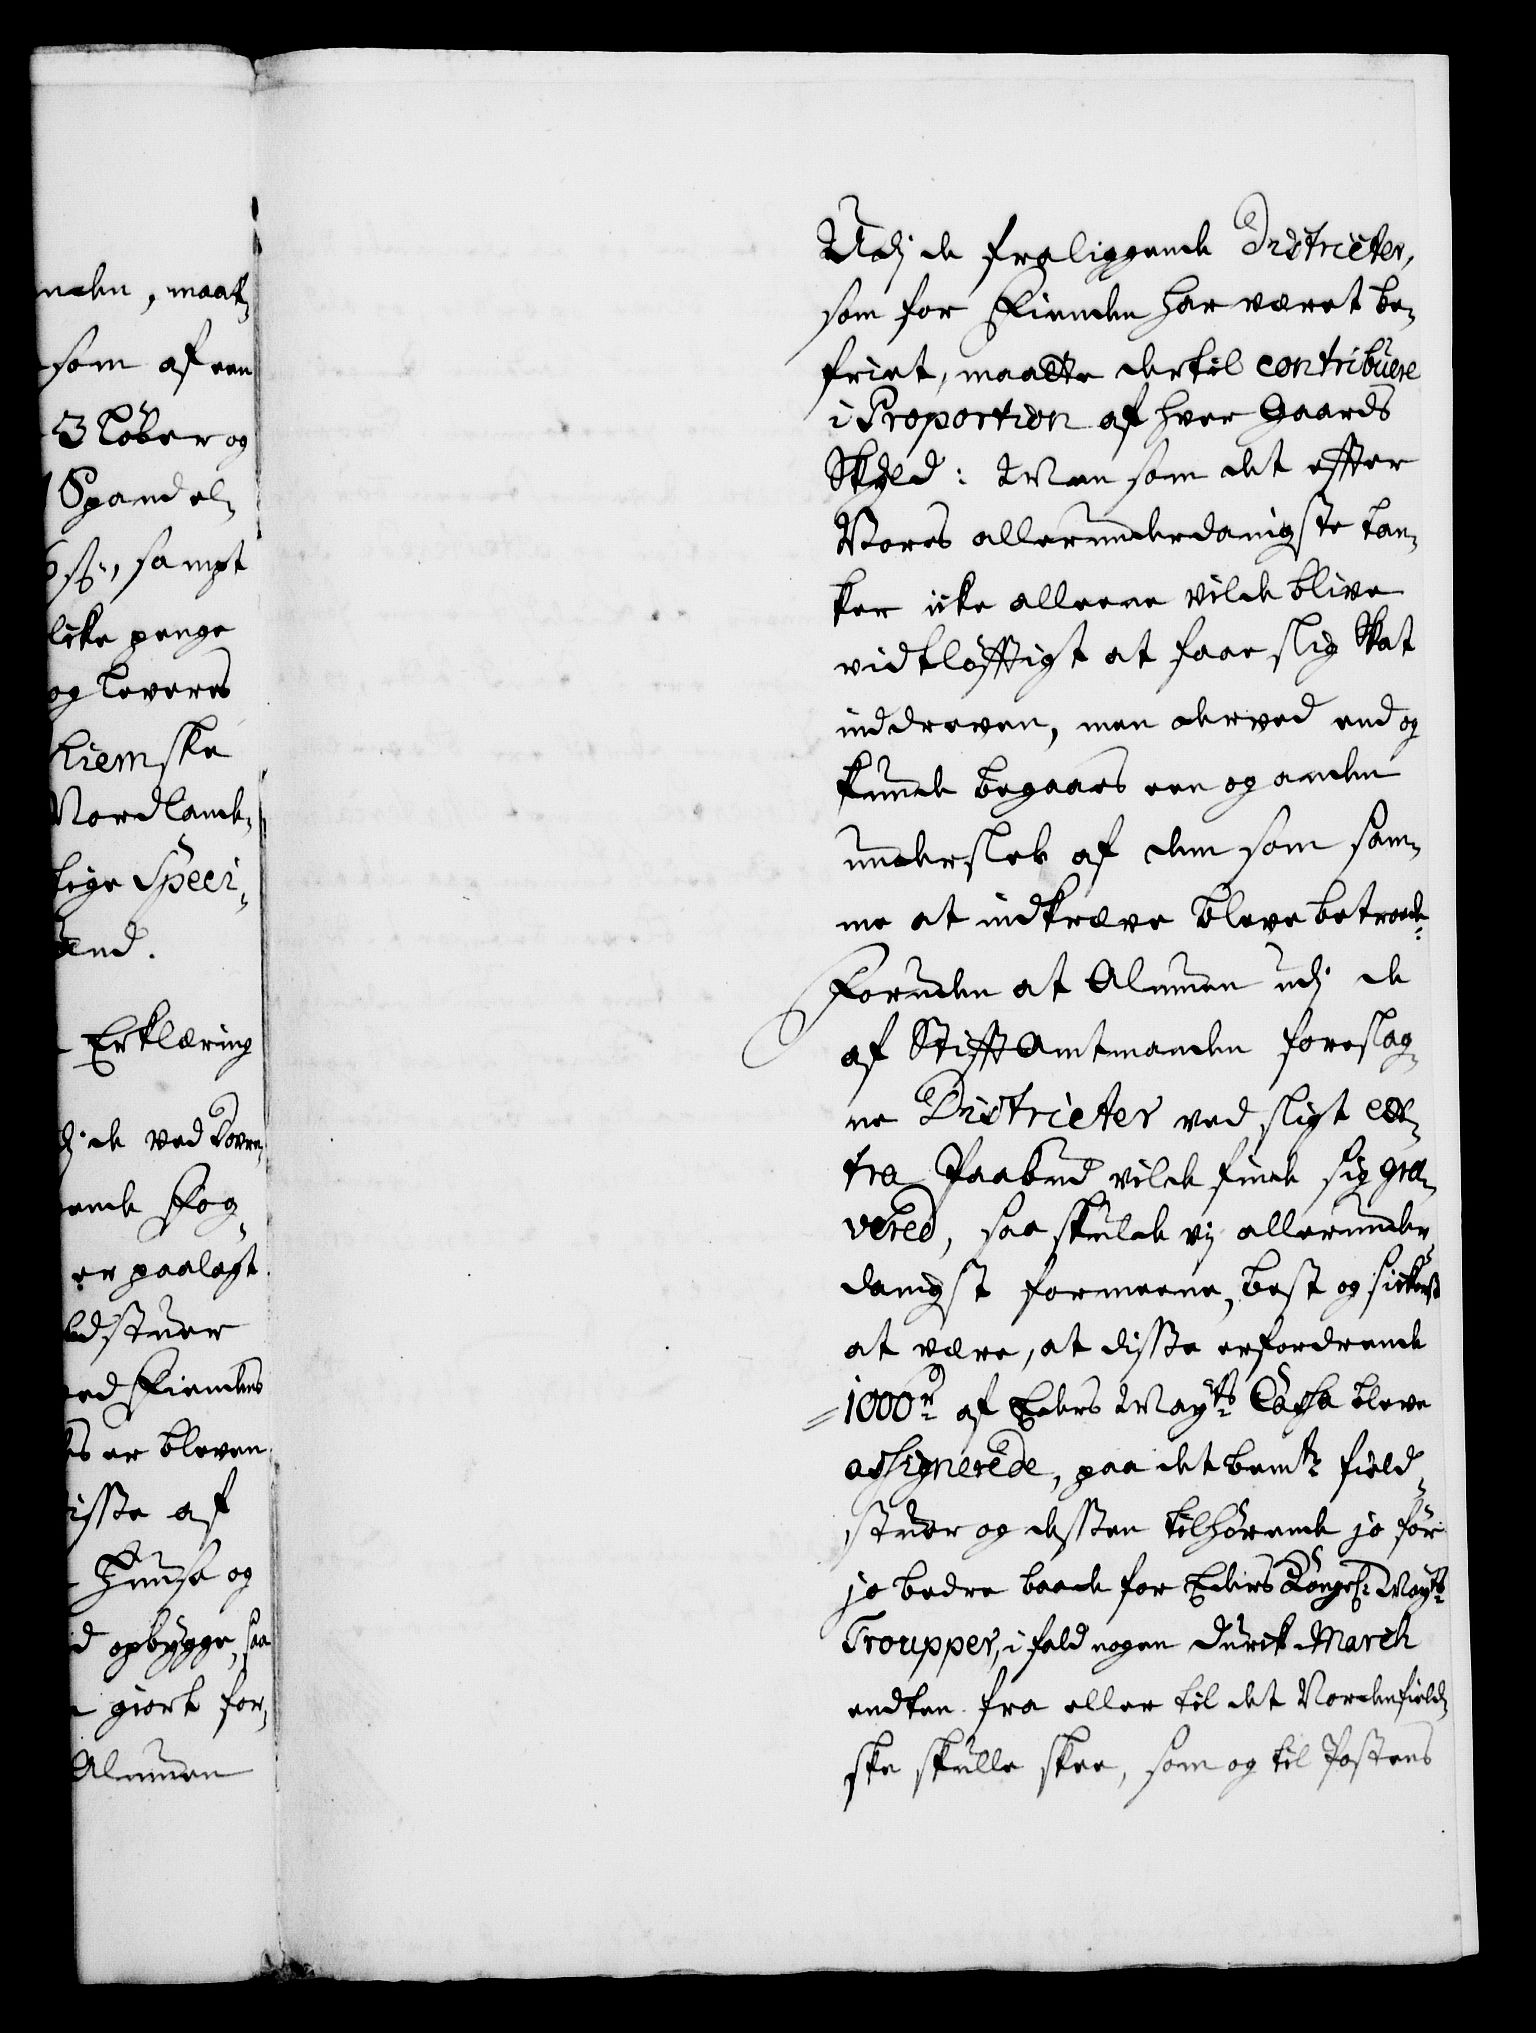 nden, maat¬
som af een
3 Löber og
1 Spandel¬
6 sz., sampt
like penge
og leveres
hiemske
Nordlande¬
lige Speci¬
end.
Erklæring
dj de ved Dovre¬
ende Fog¬
er paalagt
ldstuer
ed Fiendens
es er bleven
isse af
Huuse og
d opbÿgge, saa
giort for¬
Almuen
Udj de fraliggende Districter,
som for Fienden har været be¬
friet, maatte dertil contribuere
i Proportion af hver Gaards
Skyld: Men som det effter
Vores allerunderdanigste tan¬
ker icke alleene vilde blive
vidtløfftigt at faae slig Skat
inddreven, men derved end og
kunde begaaes een og anden
underslæb af dem som sam¬
me at indkræve bleve betroede.
Foruden at Almuen udj de
af StifftAmtmanden foreslag¬
ne Districter ved sligt ex¬
tra Paabud vilde finde sig gra¬
vered, saa skulde vj allerunder¬
danigst formeene, best og sickerst
at være, at disse erfordrende
1000 r af Eders Mayts Cassa bleve
assignerede, paa det bemte field¬
stuer og dessen tilhørende jo før
jo bedre baade for Eders Kongel: Mayts
Troupper, i fald nogen durck March
endten fra eller til det Nordenfield¬
ske skulle skee, som og til Postens